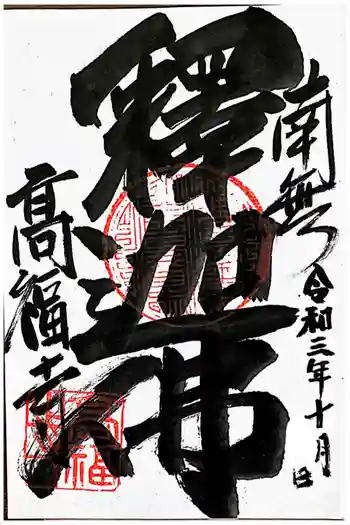 南無
令和三年十月 日
釋迦
髙福寺